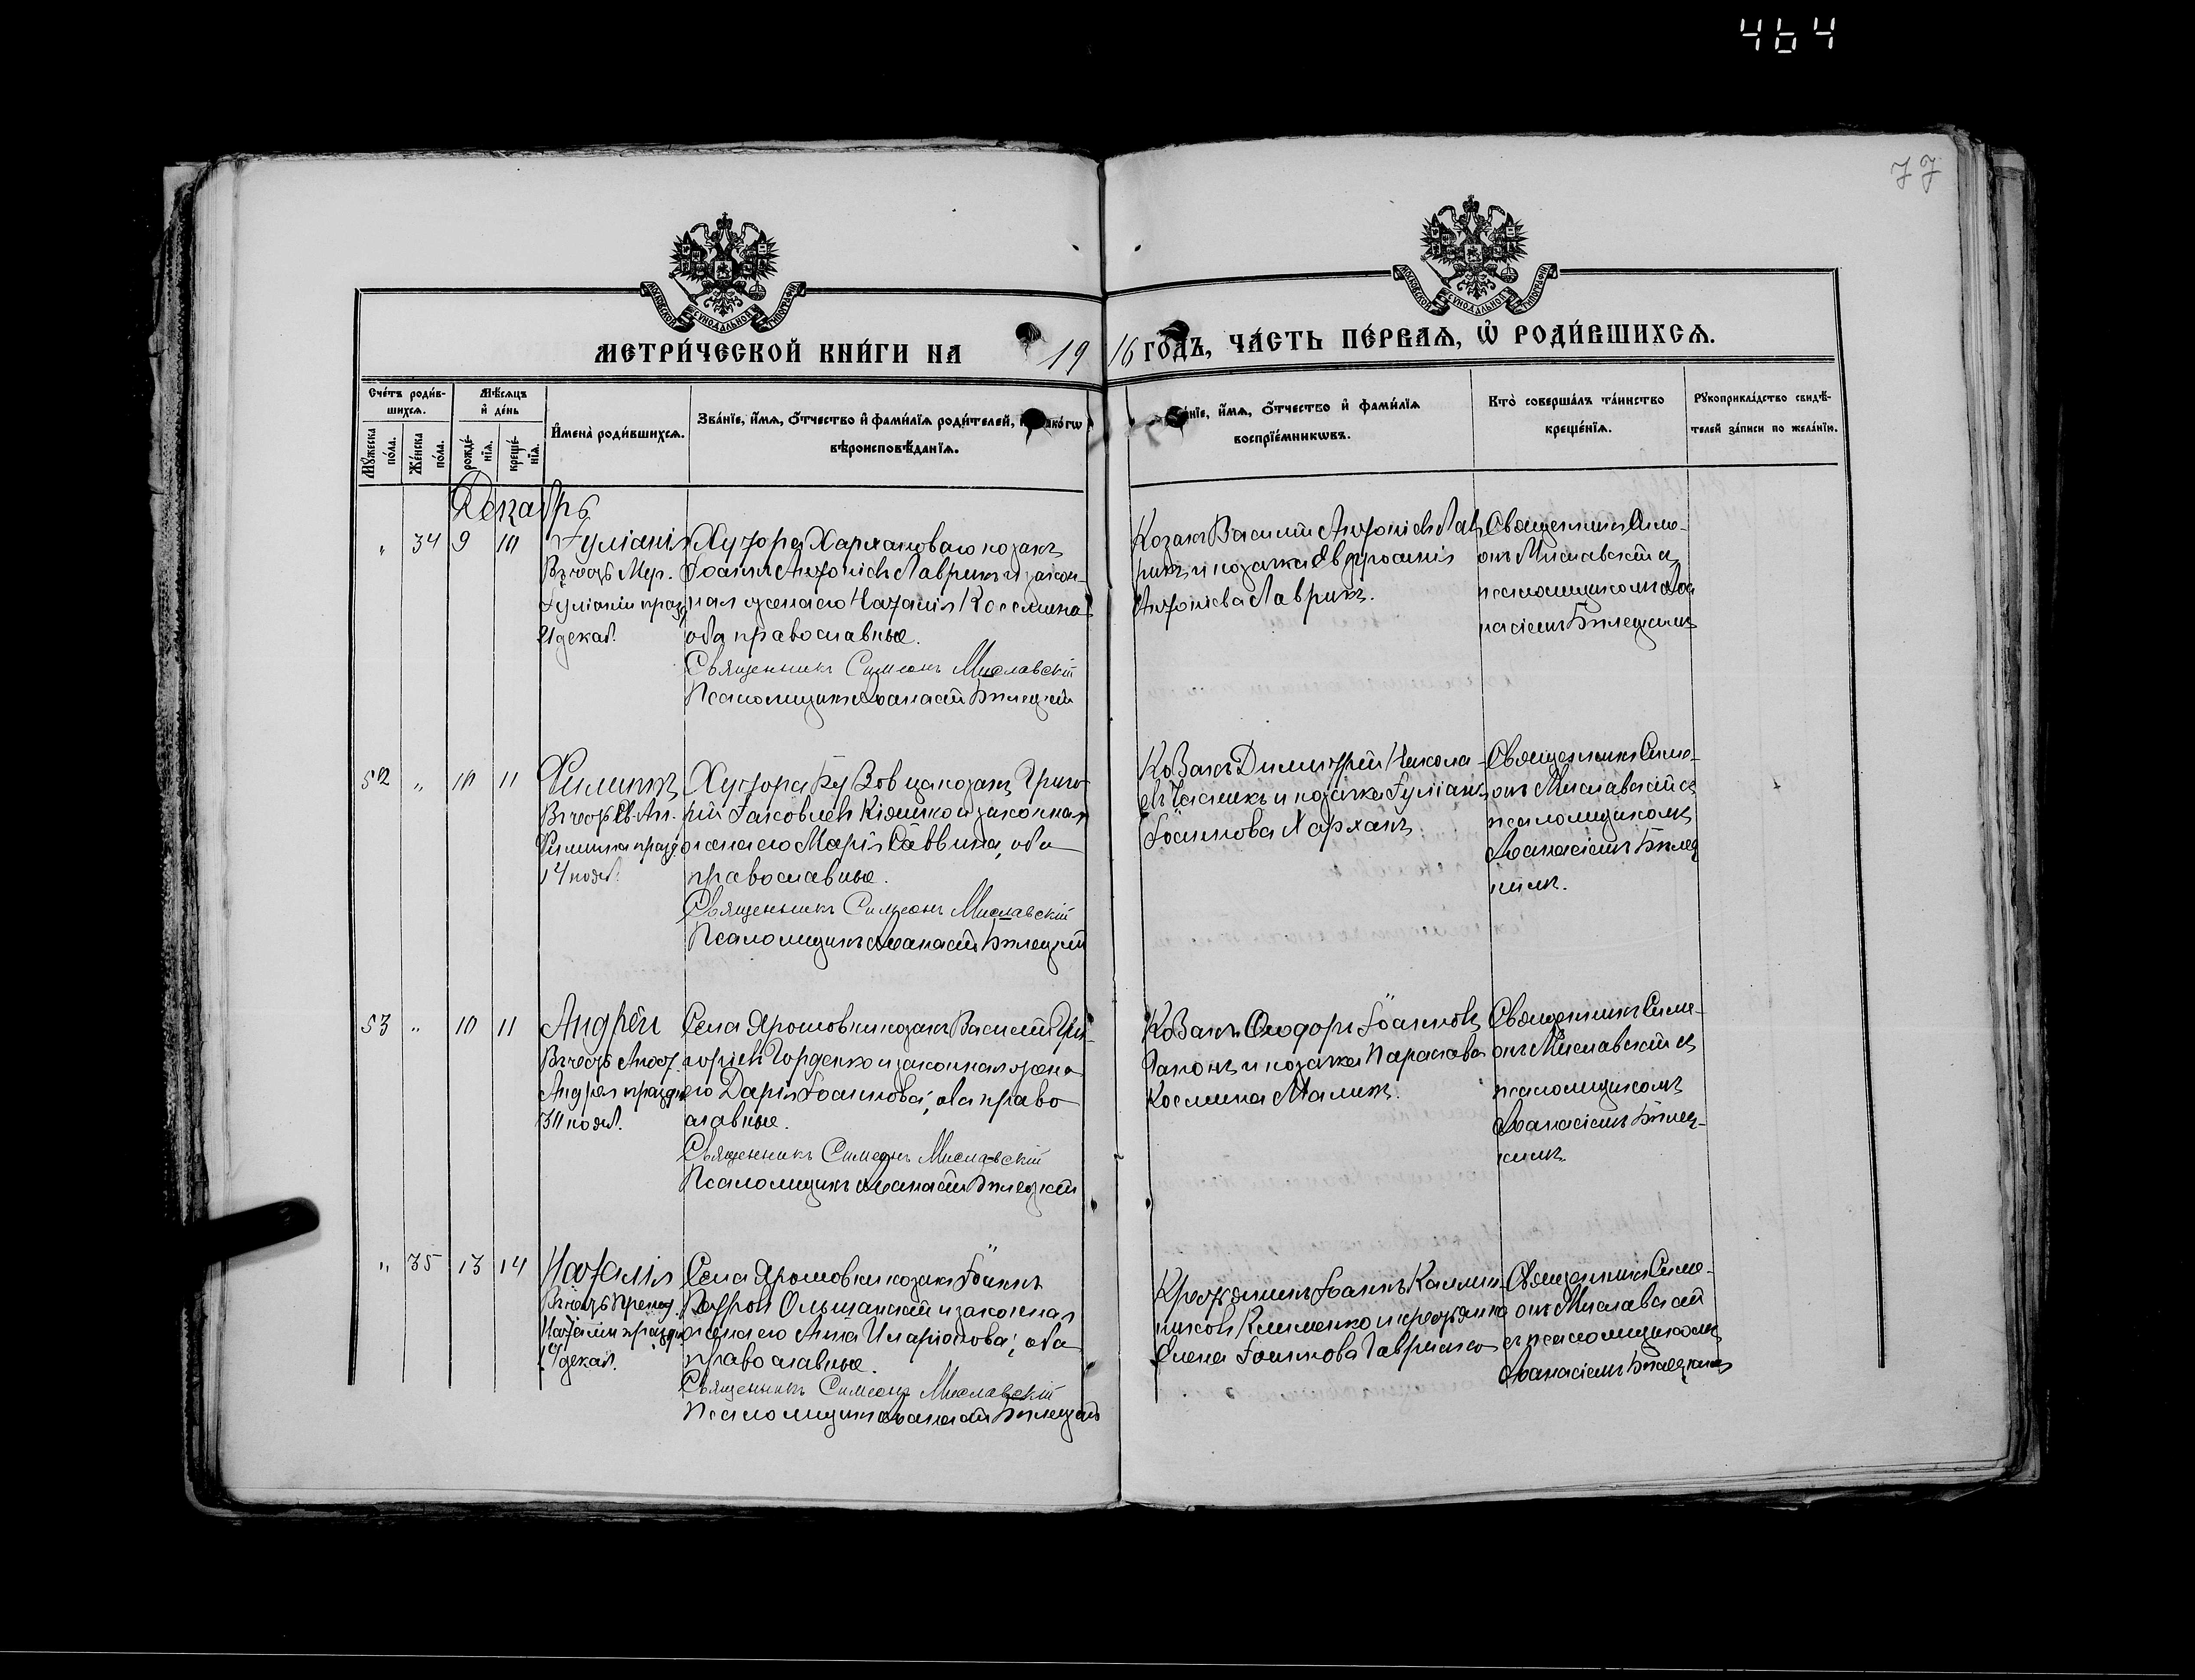 464
77
МОСКОВСКОЙ СѴНОДАЛЬНОЙ ТИПОГРАФІИ
МОСКОВСКОЙ СѴНОДАЛЬНОЙ ТИПОГРАФІИ
МЕТРИ́ЧЕСКОЙ КНИ́ГИ НА 1916 ГО́ДЪ, ЧА́СТЬ ПЕ́РВАѦ, Ѡ҆ РОДИ́ВШИХСѦ.
Сче́тъ роди́в-
шихсѧ.
Мꙋ́жеска по́ла.
Же́нска по́ла.
Мѣ́сѧцъ
и҆ де́нь
рожде́-
нїѧ.
креще́-
нїѧ.
И҆мена̀ роди́вшихсѧ.
Зва́нїе, и҆́мѧ, ѻ҆́тчество и҆ фами́лїѧ роди́телей, и҆ како́гѡ
вѣроисповѣ́данїѧ.
Зва́нїе, и҆́мѧ, ѻ҆́тчество и҆ фами́лїѧ
воспрїе́мникѡвъ.
Кто̀ соверша́лъ та́инство
креще́нїѧ.
Рꙋкоприкла́дство свидѣ́-
телей за́писи по жела́нїю.
Декабрь
„ 34 9 10
Іуліанія
Въ честь Муч.
Іуліаніи празд.
21 декаб.
Хутора Харханового козакъ
Іоаннъ Антоніевъ Лаврикъ и закон-
ная жена его Наталія Космина
оба православные.
Священникъ Симеонъ Миславскій
Псаломщикъ Аѳанасій Бѣлецкій
Козакъ Василій Антоніевъ Лав
рикъ и козачка Евфросинія
Антоніева Лаврикъ.
Священникъ Симе-
онъ Миславскій съ
псаломщикомъ Аѳа
насіемъ Бѣлецкимъ
52 „ 10 11
Филиппъ
Въ честь Св. Ап.
Филиппа празд.
14 нояб.
Хутора козакъ Григо
рій Іаковлевъ и законная
жена его Марія Саввина, оба
православные.
Священникъ Симеонъ Миславскій
Псаломщикъ Аѳанасій Бѣлецкій
Козакъ Димитрій Никола-
евъ и козачка Іуліанія
Іоаннова Харханъ
Священникъ Симе-
онъ Миславскій съ
псаломщикомъ
Аѳанасіемъ Бѣлец
кимъ.
53 „ 10 11
Андрей
Въ честь Апост.
Андрея праздн.
30 нояб.
Села Ярошовки козакъ Василій Гри-
горіевъ Горденко и законная жена
его Дарія Іоаннова, оба право
славные.
Священникъ Симеонъ Миславскій
Псаломщикъ Аѳанасій Бѣлецкій
Козакъ Ѳеодоръ Іоанновъ
и козачка Параскева
Космина Маликъ.
Священникъ Симе-
онъ Миславскій съ
псаломщикомъ
Аѳанасіемъ Бѣлец-
кимъ.
„ 35 13 14
Наталія
Въ честь Препод.
Наталіи праздн.
декаб.
Села Ярошовки козакъ Іоаннъ
Петровъ Ольшанскій и законная
жена его Анна Иларіонова, оба
православные.
Священникъ Симеонъ Миславскій
Псаломщикъ Аѳанасій Бѣлецкій
Крестьянинъ Іоаннъ Калли-
никовъ Клименко и крестьянка
Елена Іоаннова Гавриленко
Священникъ Симе-
онъ Миславскій
съ псаломщикомъ
Аѳанасіемъ Бѣлецкимъ